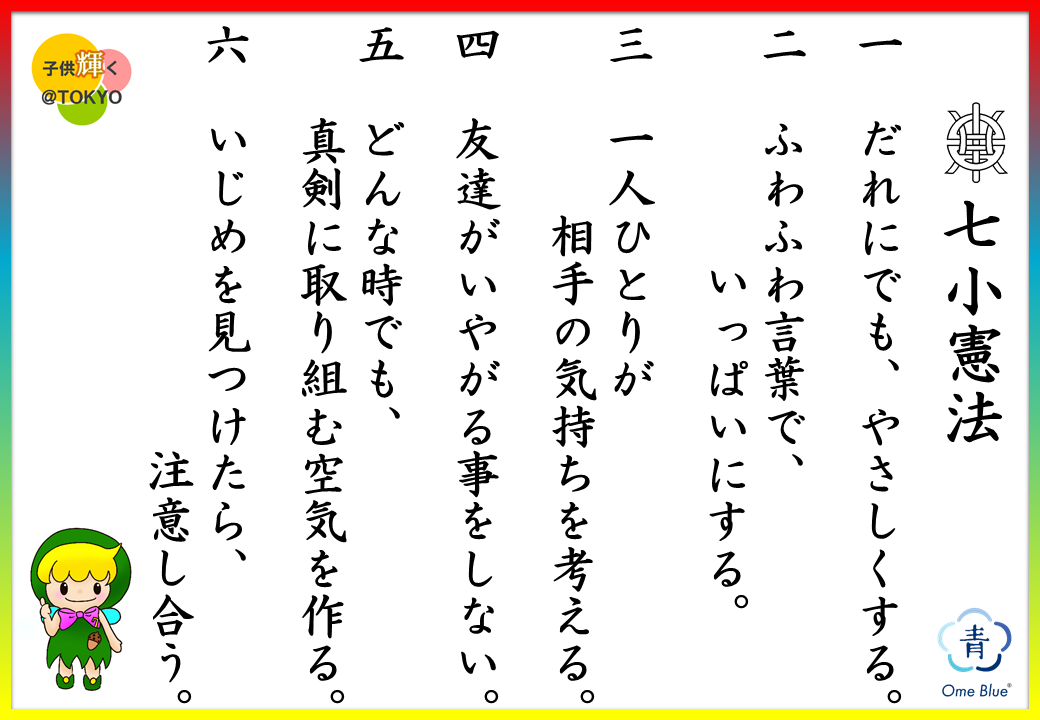 七小憲法
一 だれにでも、やさしくする。
二 ふわふわ言葉で、
いっぱいにする。
三 一人ひとりが
相手の気持ちを考える。
四 友達がいやがる事をしない。
五 どんな時でも、
真剣に取り組む空気を作る。
六 いじめを見つけたら、
注意し合う。
子供輝く
@TOKYO
青
Ome Blue®